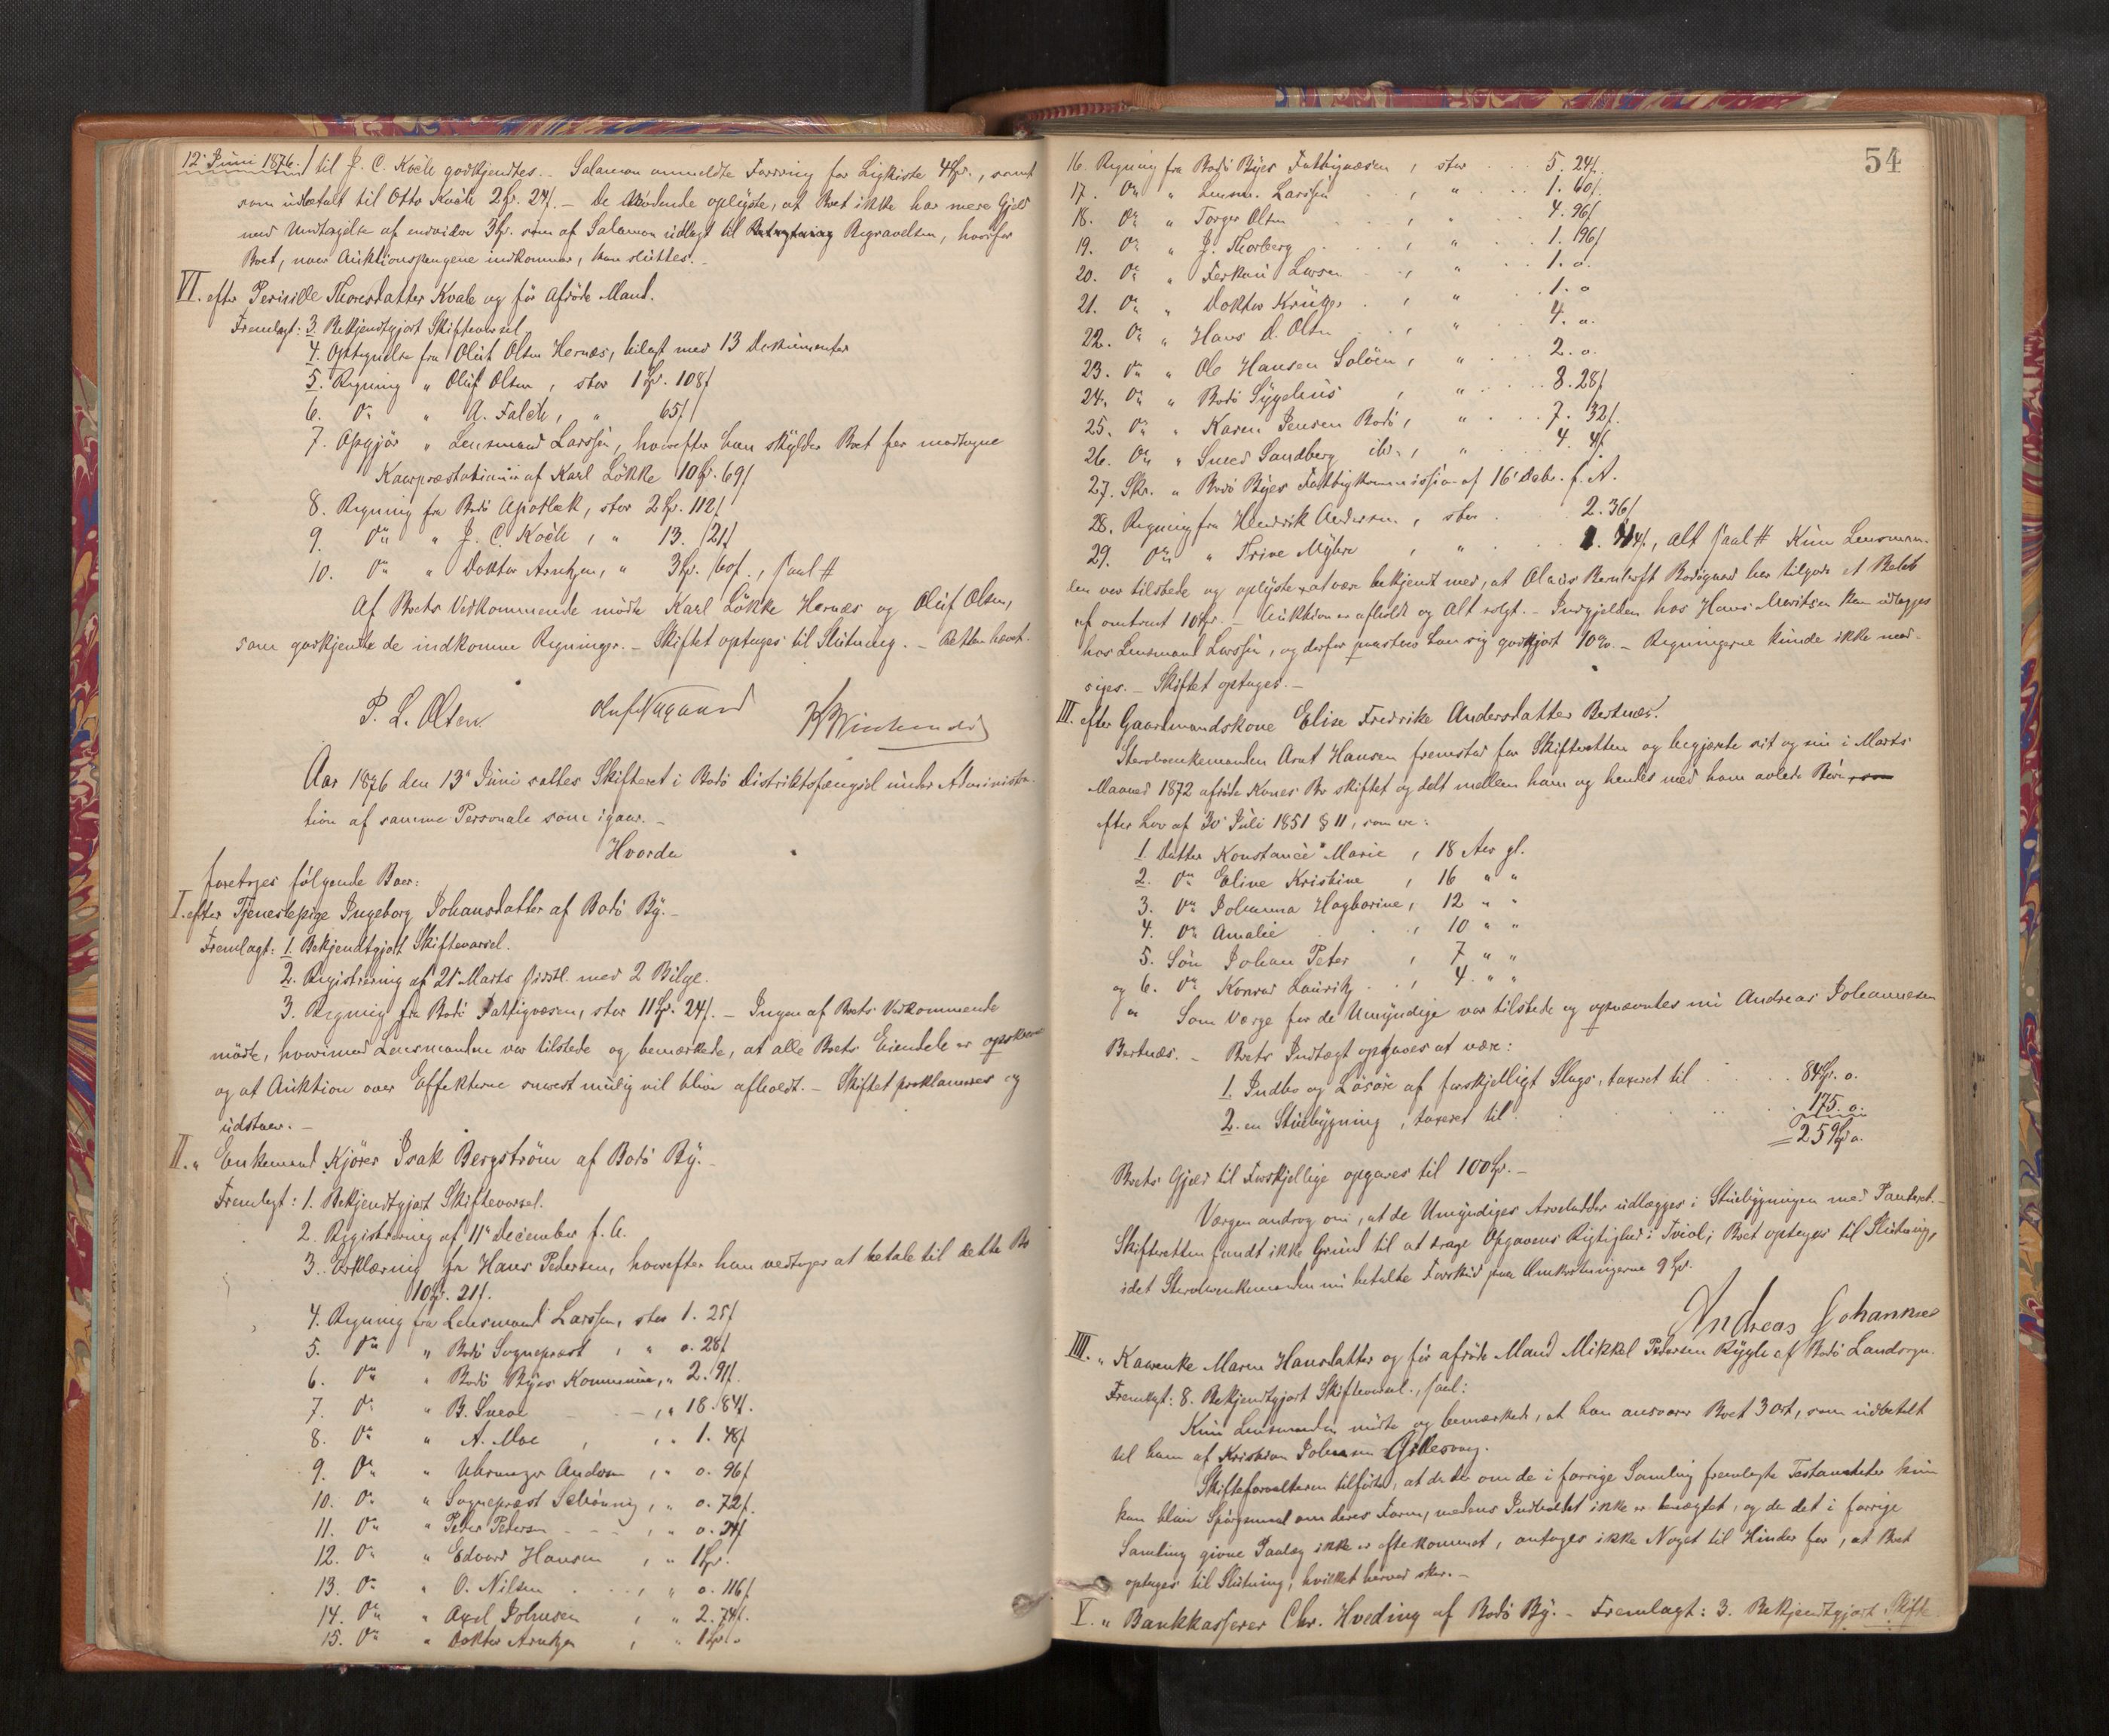 12' Juni 1876. / til J. C. Koch godkjendtes. - Salamon anmeldte Fordring for Ligkiste 4 Spd., samt
som udbetalt til Otto Koch 2 Spd. 24 /. - De Mødende oplyste, at Boet ikke har mere Gjeld
med Undtagelse af endvidere 3 Spd. som af Salamon udlagt til Begravelsen, hvorfor
Boet, naar Auktionspengene indkommer, kan sluttes. -
VI. efter Pernille Thoresdatter Kvale og før afdøde Mand.
Fremlagt: 3. Bekjendtgjort Skiftevarsel
4. Optegnelse fra Oluf Olsen Hernæs, bilagt med 13 Dokumenter
5. Regning " Oluf Olsen, stor 1 Spd. 108 /
6. Do " A. Falch, " 65 /
7. Opgjør " Lensmand Larssen, hvorefter han skylder Boet for modtagne
Kaarprestationer af Karl Løkke 10 Spd. 69 /
8. Regning fra Bodø Apothek, stor 2 Spd. 112 /
9. Do " J. C. Koch, " 13. 21 /
10. Do " Doktor Arntzen, " 3 Spd. 60 /., saal #
Af Boets Vedkommende mødte Karl Løkke Hernæs og Oluf Olsen,
som godkjente de indkomne Regninger. - Skiftet optages til Slutning. - Retten hævet.
P. L. Olsen
Aar 1876 den 13' Juni sattes Skifteret i Bodø Distriktsfængsel under Administra-
tion af samme Personale som igaar. -
Hvorda
foretoges følgende Boer:
I. efter Tjenestepige Ingeborg Johansdatter af Bodø By. -
Fremlagt: 1. Bekjendtgjort Skiftevarsel.
2. Registrering af 21' Marts sidstl. med 2 Bilage.
3. Regning fra Bodø Fattigvæsen, stor 11 Spd. 24 /. - Ingen af Boets Vedkommende
mødte, hvorimod Lensmanden var tilstede og bemærkede, at alle Boets Eiendele er opskrevne
og at Auktion over Effekterne snarest mulig vil blive afholdt. - Skiftet proklameres og
udstaar. -
II. " Enkemand Kjører Isak Bergstrøm af Bodø By. -
Fremlagt: 1. Bekjendtgjort Skiftevarsel.
2. Registrering af 11' December f. A.
3. Erklæring fra Hans Pedersen, hvorefter han vedtager at betale til dette Bo
10 Spd. 21 /.
4. Regning fra Lensmand Larssen, stor 1. 25 /
5. Do " Bodø Sognepræst, " o. 28 /
6. Do " Bodø Byes Kommune, " 2. 91 /.
7. Do " B. Sneve - - , " 18. 84 /.
8. Do " A. Moe , " 1. 48 /
9. Do " Uhrmager Andersen , " o. 96 /
10. Do " Sognepræst Schønning, " o. 72 /.
11. Do " Peter Petersen - - - , " o. 24 /
12. Do " Edvard Hansen , " 1 Spd.
13. Do " O. Nilsen , " o. 116 /
14. Do " Axel Johnsen , " 2. 74 /.
15. Do " Doktor Arntzen , " 1 Spd. o
54
16. Regning fra Bodø Byes Fattigvæsen , stor . . . 5. 24 /.
17. Do " Lensm. Larssen , " . . . 1. 60 /.
18. Do " Torger Olsen , " . . 4. 96 /
19. Do " J. Thorberg . . , " . . 1. 96 /
20. Do " Larsen . . , " . . 1. o.
21. Do " Doktor Krüger . , " . . 1. o
22. Do " Hans d. Olsen . . , " . . 4. o.
23. Do " Ole Hansen Soløen , " . . . 2. o.
24. Do " Bodø Sygehus , " . . . 8. 28 /
25. Do " Karen Jensen Bodø , " . . . 7. 32 /.
26. Do " Smed Sandberg ibd., " . . 4. 4 /.
27. Skr. " Bodø Byes Fattigkommission af 16' Decbr. f. A.
28. Regning fra Hendrik Andersen , stor . 2. 36 /
29. Do " Trine Myhre , " , alt saal # Kun Lensman-
den var tilstede og oplyste at være bekjendt med, at Olaus Berntoft Bodøgaard har tilgode et Beløb
af omtrent 10 Spd. - Auktion er afholdt og Alt solgt. - Indgjelden hos Hans Mortsen kan udlægges
hos Lensmand Larssen, og derfor paastaar han sig godtgjort 10 %. - Regningerne kunde ikke mod-
siges. - Skiftet optages. -
III. efter Gaardmandskone Elise Fredrike Andersdatter Bertnæs.
Stervboenkemanden Arnt Hansen fremstod for Skifteretten og begjærte sit og sin i Marts
Maaned 1872 afdøde Kones Bo skiftet og delt mellem ham og hendes med ham avlede Børn
efter Lov af 30' Juli 1851 § 11, som ere:
1. Datter Konstance Marie , 18 Aar gl.
2. Do Eline Kristine , 16 " "
3. Do Johanna Hagbarine, 12 " "
4. Do Amalie . , 10 " "
5. Søn Johan Peter , 7 " "
og 6. Do Konrad Lauritz . . , 4. " "
" Som Værge for de Umyndige var tilstede og opnævntes nu Andreas Johannesen
Bertnæs. - Boets Indtægt opgaves at være:
1. Indbo og Løsøre af forskjelligt Slags, taxeret til . . . 84 Spd. o.
2. en Stuebygning , taxeret til . . . 175. o.
= 259 Spd. o.
Boets Gjeld til Forskjellige opgaves til 100 Spd. -
Værgen androg om, at de Umyndiges Arvelodder udlægges i Stuebygningen med Panteret. -
Skifteretten fandt ikke Grund til at drage Opgavens Rigtighed i Tvivl; Boet optages til Slutning,
idet Stervboenkemanden nu betalte Forskud paa Omkostningerne 9 Spd.
Andreas Johannes
IIII. " Kaarenke Maren Hansdatter og før afdøde Mand Mikkel Pedersen Rygh af Bodø Landsogn.
Fremlagt: 8. Bekjendtgjort Skiftevarsel., saal:
Kun Lensmanden mødte og bemærkede, at han ansvarer Boet 3 Ort, som udbetalt
til ham af Kristian Johnsen
Skifteforvalteren tilføied, at da der om de i forrige Samling fremlagte Testamenter kun
kan blive Spørgsmaal om deres Form, medens Indholdet ikke er benægtet, og da det i forrige
Samling givne Paalæg ikke er efterkommet, antages ikke Noget til Hinder for, at Boet
optages til Slutning, hvilket herved sker. -
V. " Bankkasserer Chr. Hveding af Bodø By. - Fremlagt: 3. Bekjendtgjort Skifte